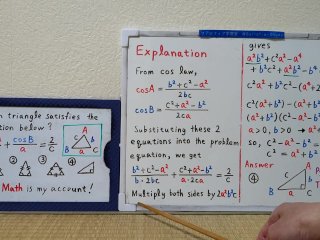 n triangle satisfies the
tion below ?
+ cosB/a = 2/C
A
c b
B a C
② ③ ④
Math is my account !
Explanation
From cos law,
cosA = b²+c²-a² / 2bc
cosB = c²+a²-b² / 2ca
Substituting these 2
equations into the problem
equation, we get
b²+c²-a² / b・2bc + c²+a²-b² / a・2ca = 2/C
Multiply both sides by 2a²b²c
gives
a²b² + c²a² - a⁴
+ b²c² + a²b² - b⁴
c²a²
c²(a²+b²)
c²(a²+b²)
a>0, b>0 → a²+
so, c²-a²-b²
c² = a²+b²
Answer
④